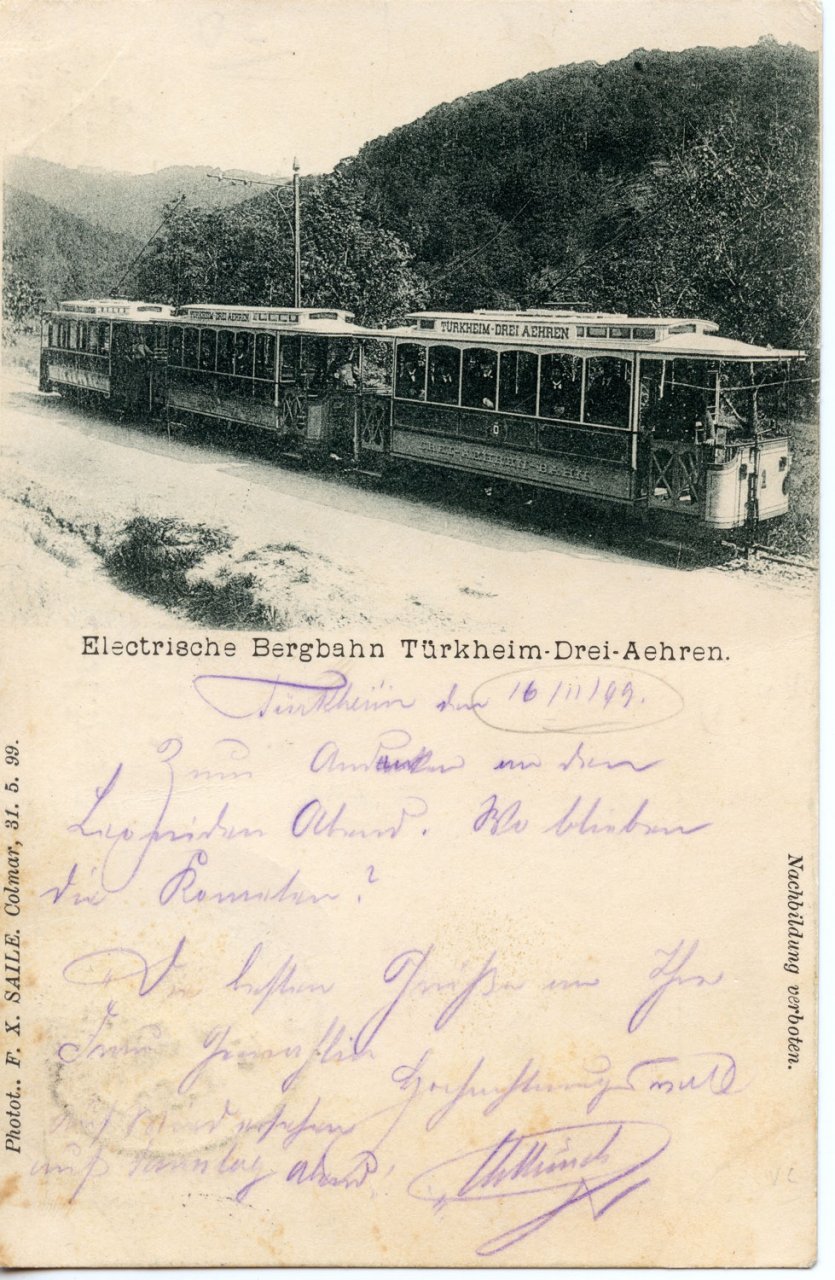 TÜRKHEIM-DREI AEHREN
TÜRKHEIM-DREI AEHREN
DREI-AEHREN-BAHN
1
Electrische Bergbahn Türkheim-Drei-Aehren.
Türkheim den 16/11/99.
Zum Andenken an den
Leoniden Abend. Wo blieben
die Kometen?
Die besten Grüße an Ihre
Frau Gemahlin
Hochachtungsvoll
Auf Wiedersehen
auf Sonntag Abend!
Münch
Photot.. F. X. SAILE. Colmar, 31. 5. 99.
Nachbildung verboten.